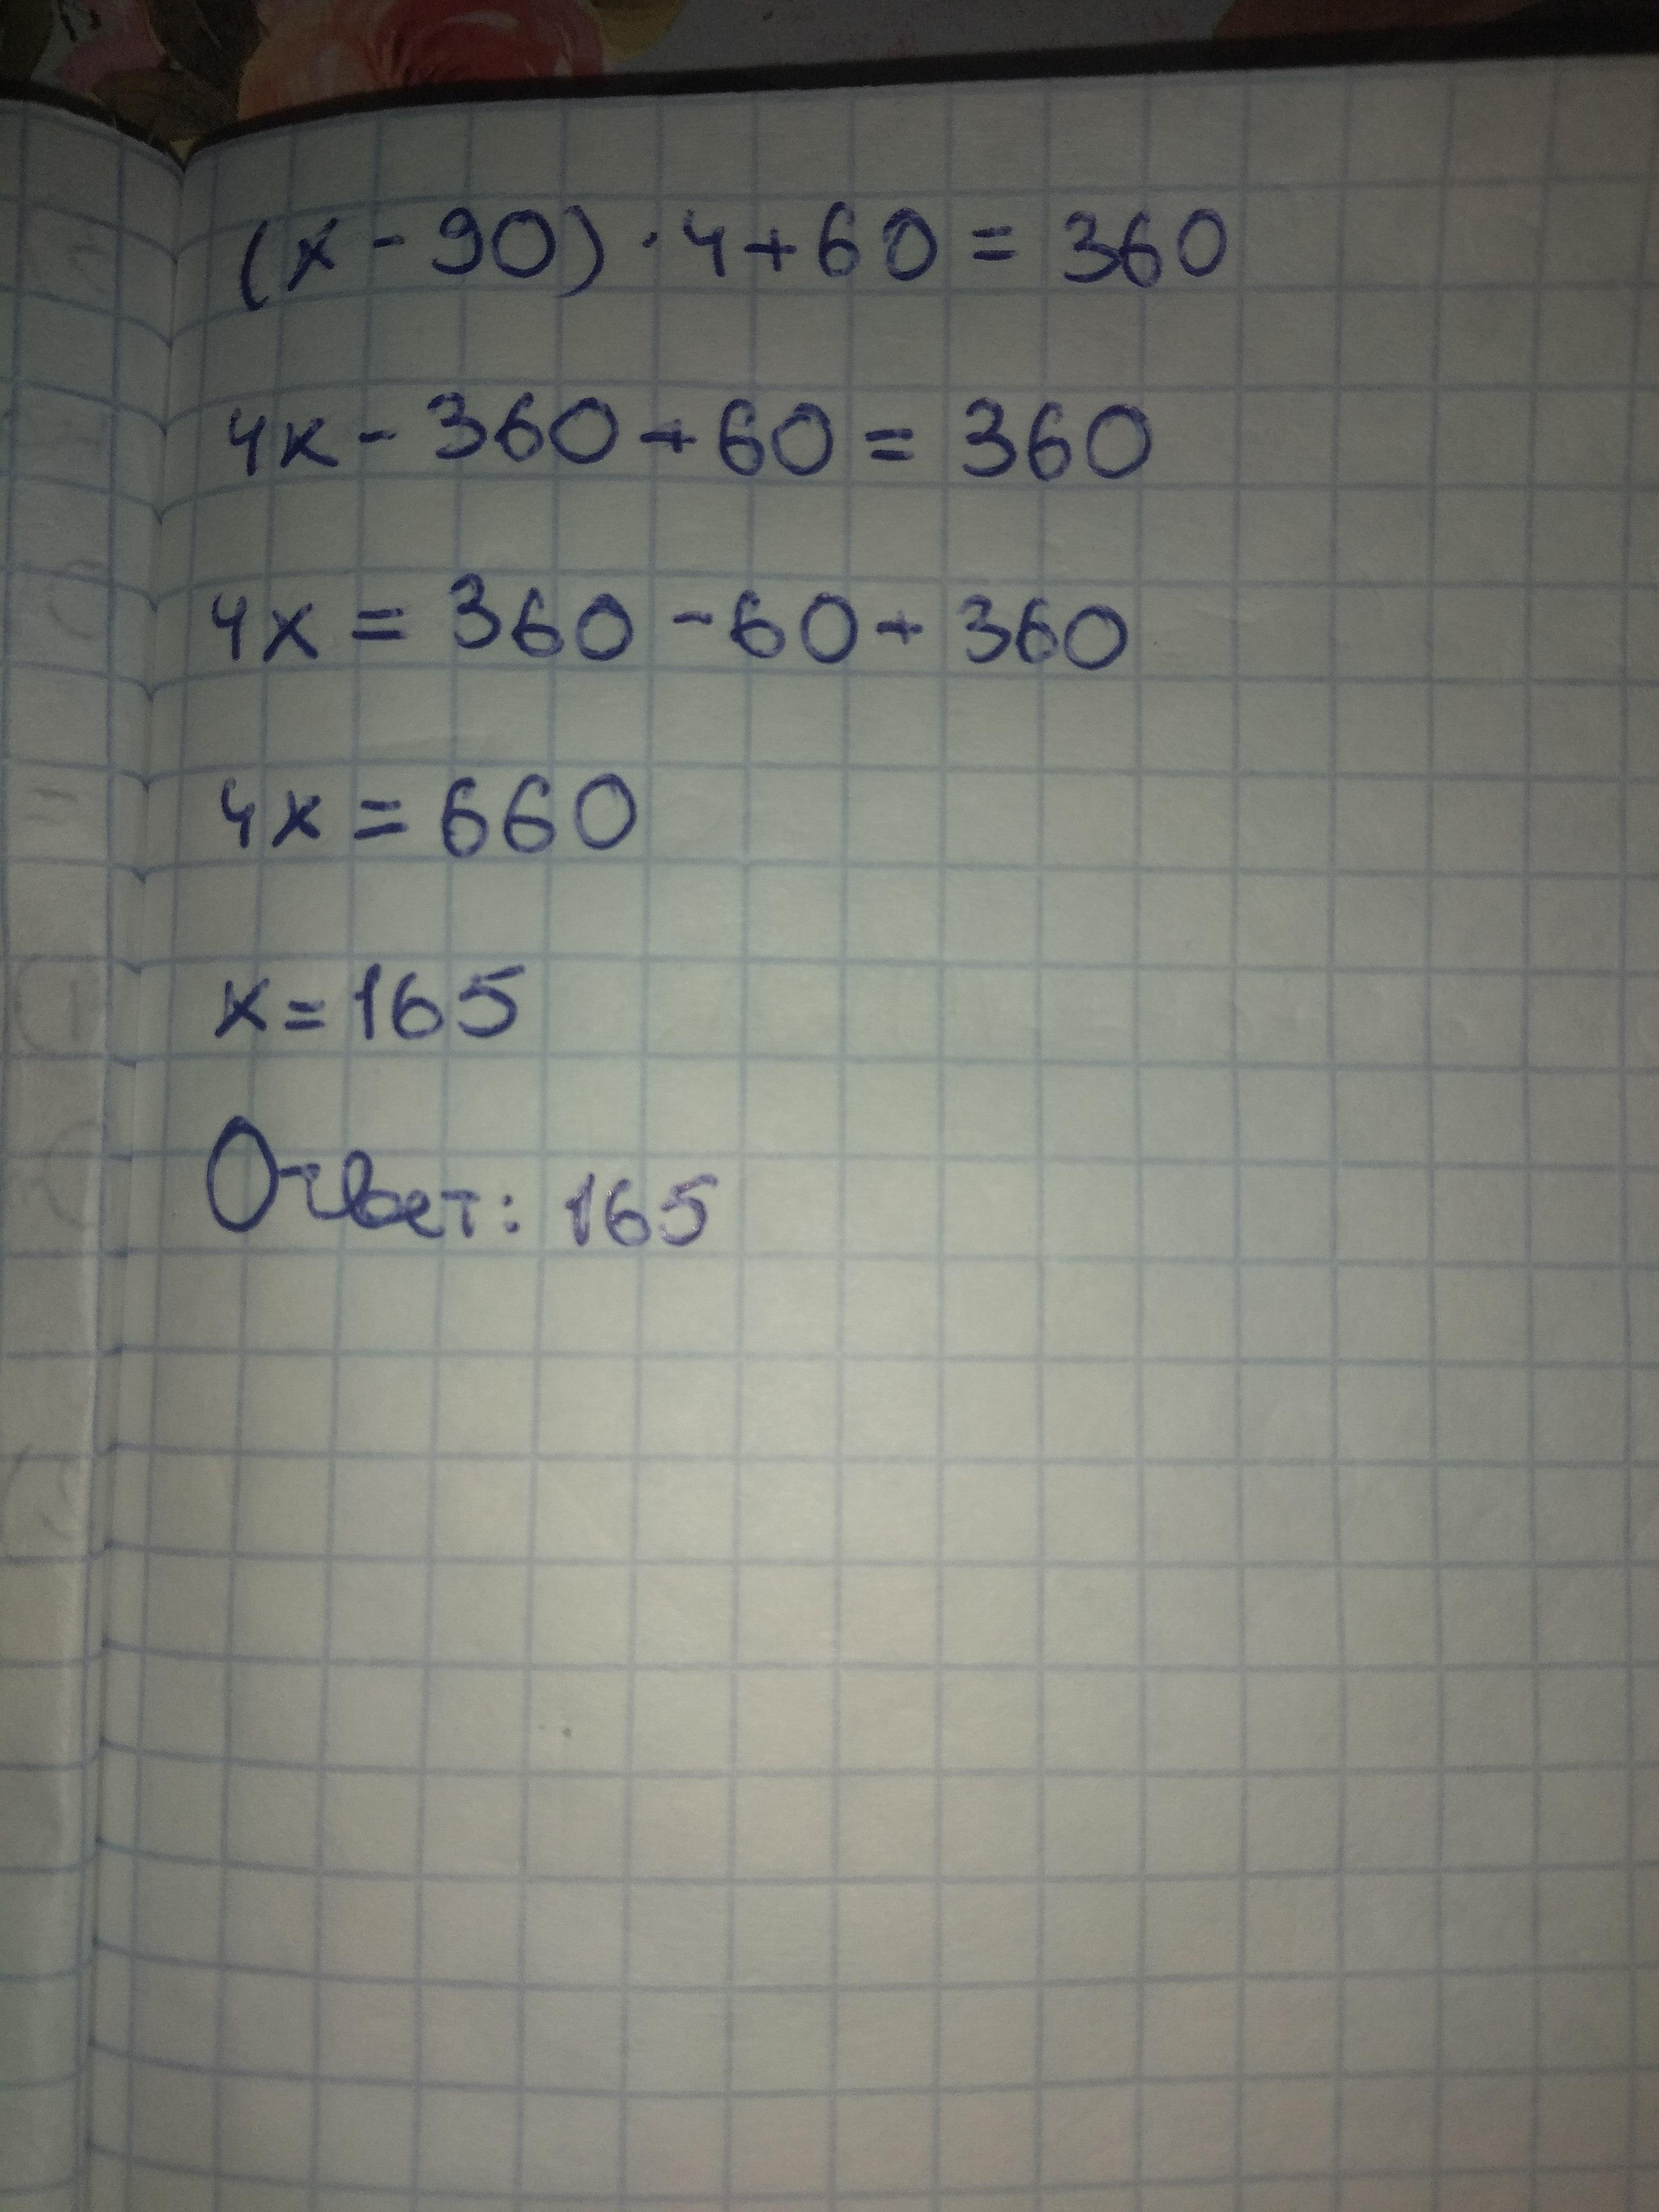 (x - 90) · 4 + 60 = 360
4x - 360 + 60 = 360
4x = 360 - 60 + 360
4x = 660
x = 165
Ответ: 165